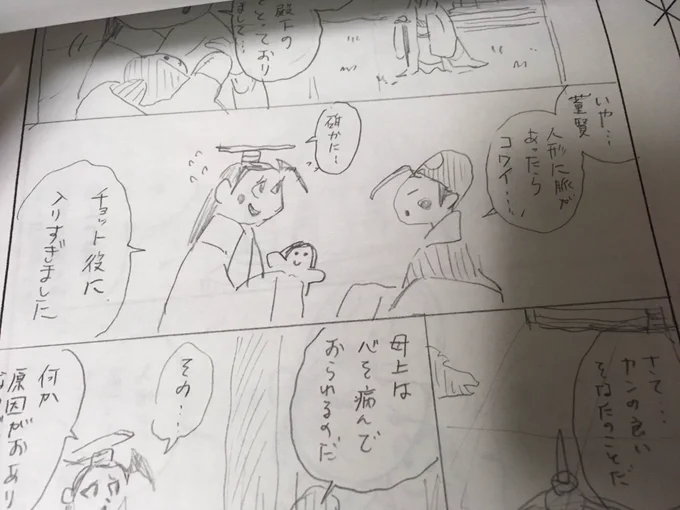 殿下の
とっており
まして…
いや…
菫賢
人形に脈が
あったら
コワイ…
確かに…
チョット役に
入りすぎました
さて…
カンの良い
そなたのことだ
母上は
心を病んで
おられるのだ
その…
何か
原因がおあり